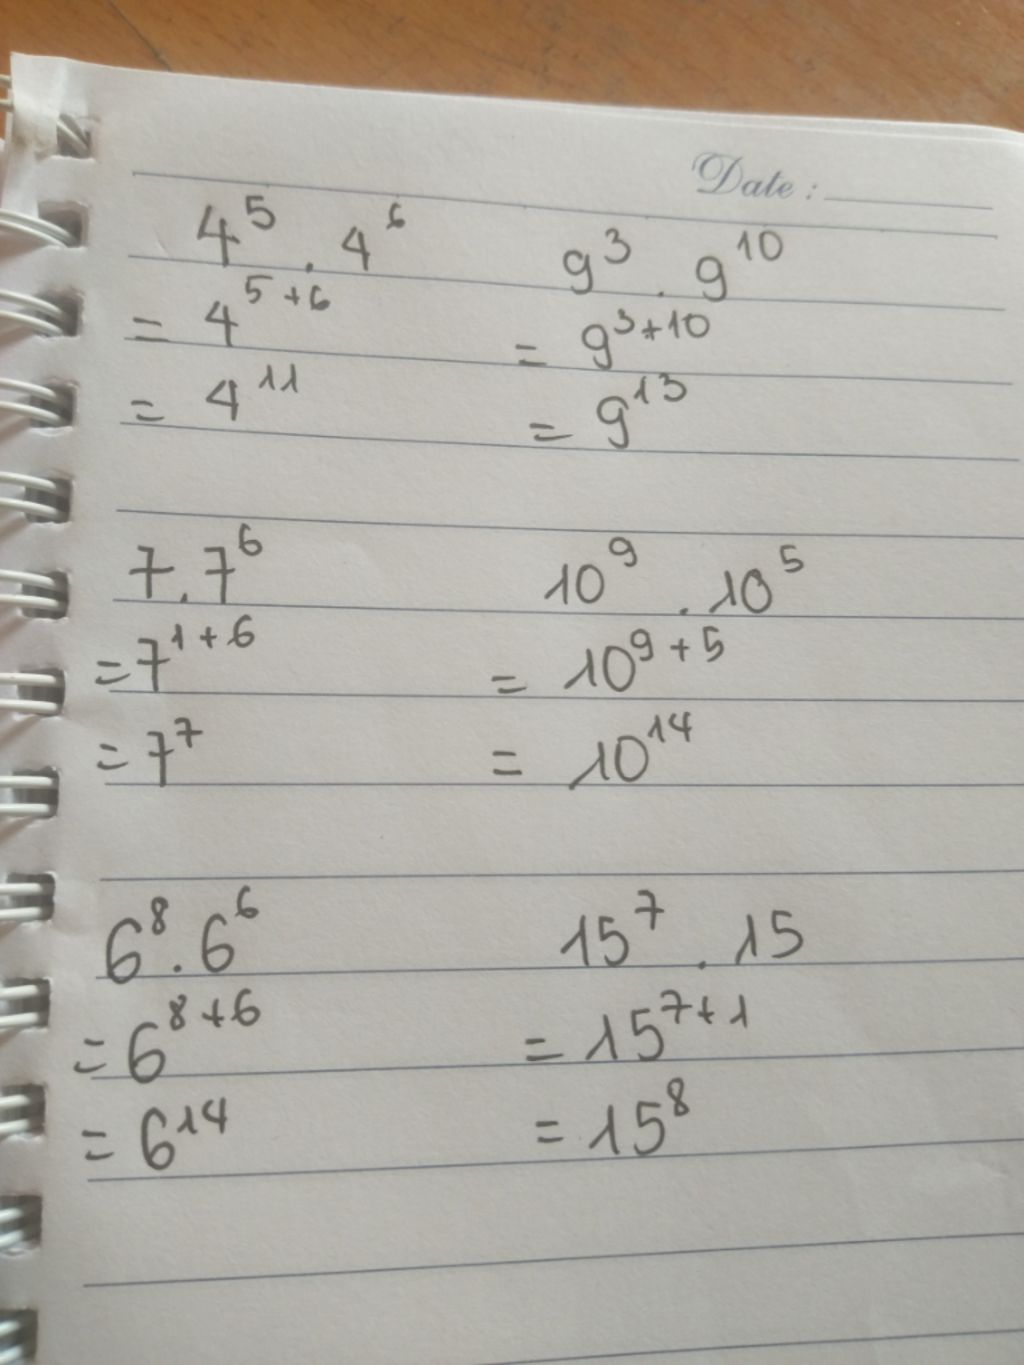 Date :
4⁵ . 4⁶
= 4⁵⁺⁶
= 4¹¹
9³ . 9¹⁰
= 9³⁺¹⁰
= 9¹³
7 . 7⁶
= 7¹⁺⁶
= 7⁷
10⁹ . 10⁵
= 10⁹⁺⁵
= 10¹⁴
6⁸ . 6⁶
= 6⁸⁺⁶
= 6¹⁴
15⁷ . 15
= 15⁷⁺¹
= 15⁸